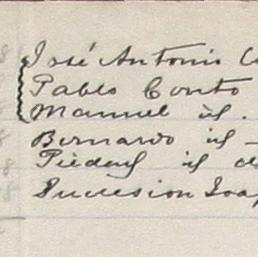 José Antonio
Pablo Conto
Manuel id.
Bernardo id –
Piedad id de
Sucesion Joaq